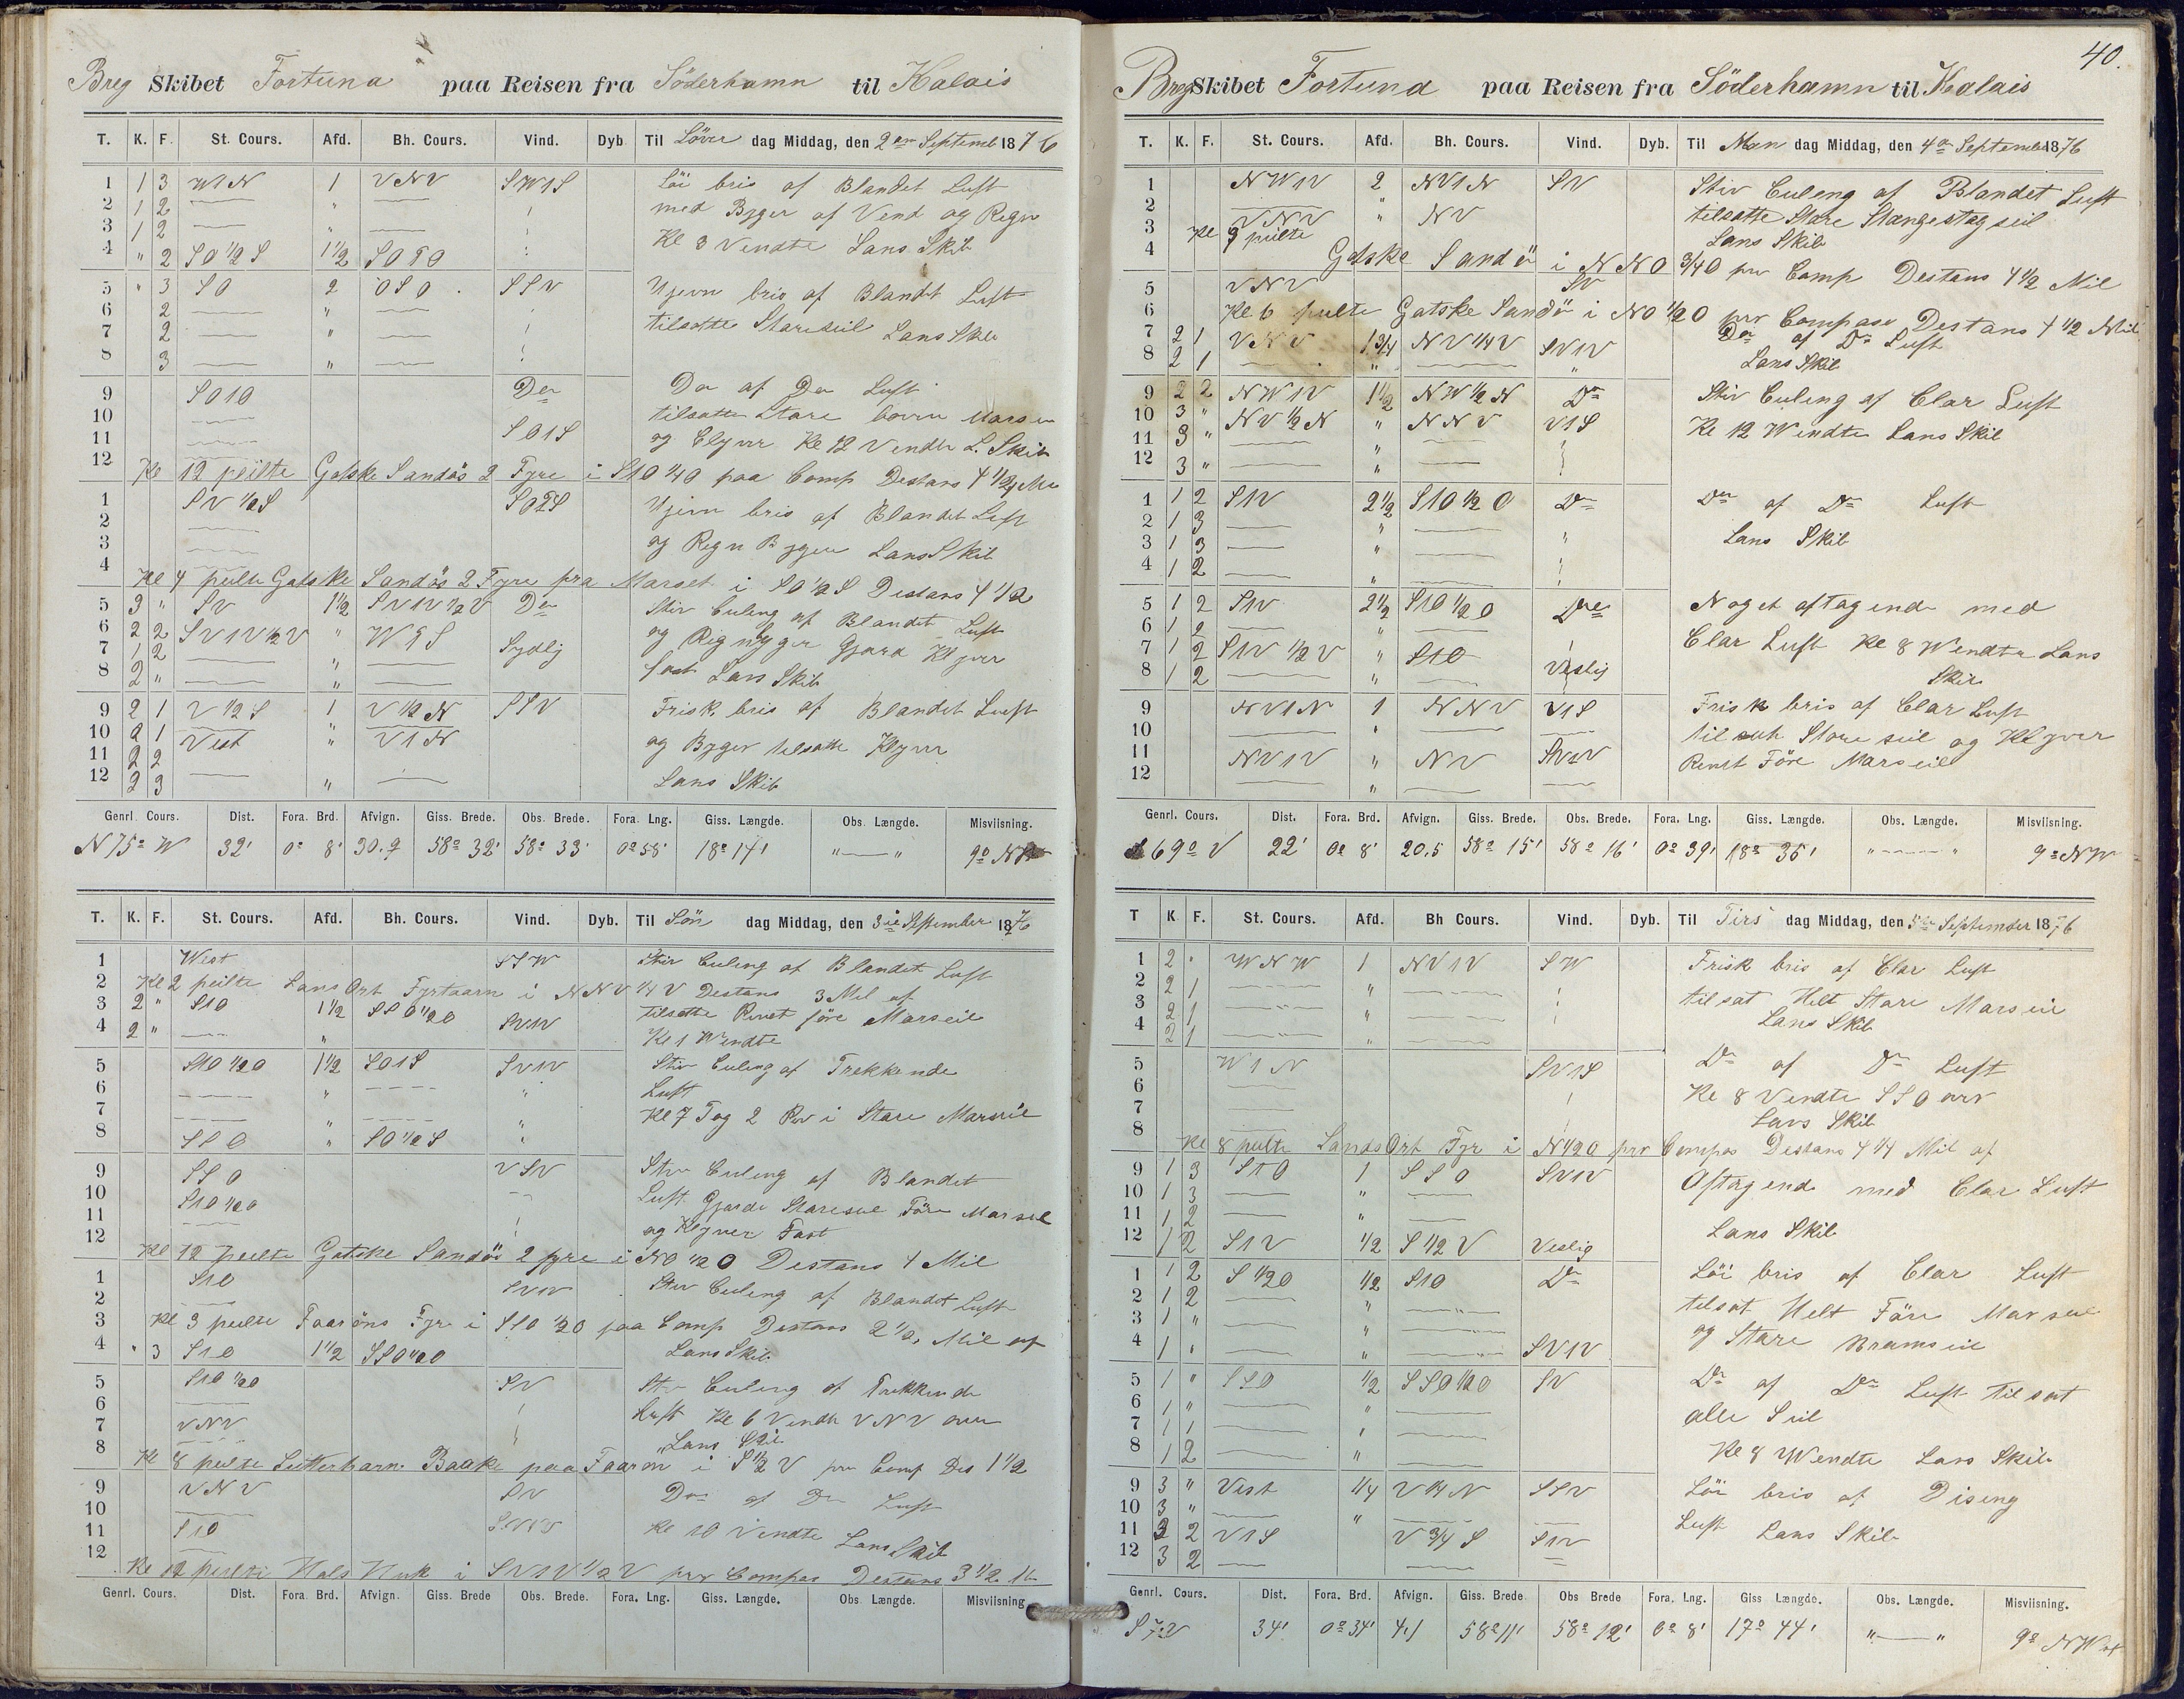 Breg Skibet Fortuna paa Reisen fra Söderhamn til Kalais
T. K. F. St. Cours. Afd. Bh. Cours. Vind. Dyb. Til Löver dag Middag, den 2en Septemb 1876
1 1 3 W1N 1 VNV SW1S Löi bris af Blandet Luft
2 1 2 " med Byger af Vend og Regn
3 1 2 " Kl 3 Vendte Lans Skib
4 " 2 SO 1/2 S 1 1/2
5 " 3 SO 2 OSO SSV Ujevn bris af Blandet Luft
6 2 " tilsatte Stareseil Lans Skib
7 2 "
8 3 "
9 SO1O Do Do af Do Luft
10 tilsatte Stare
11 SO1S og Clyver Kl 12 Vendte L. Skib
12 Kl 12 peilte Gotske Sandös 2 Fyre i paa Comp Destans 4 1/2 Mil
1 SV 1/2 S Ujevn bris af Blandet Luft
2 og Regn Byger Lans Skib
3
4 Kl 4 peilte Gotske Sandös 2 Fyre fra Marset i SO 1/2 S Destans 4 1/2
5 3 " SV 1 1/2 SV1V 1/2 V Do Stiv Culing af Blandet Luft
6 2 2 SV1V 1/2 V " og Regn Byger Gjorde Klyver
7 1 2 " Sydlig fast Lans Skib
8 2 " "
9 2 1 V 1/2 S 1 V 1/2 N SSV Frisk bris af Blandet Luft
10 2 1 Vest " V1N og Byger tilsatte Klyver
11 2 2
12 2 3 " Lans Skib
Genrl. Cours. Dist. Fora. Brd. Afvign. Giss. Brede. Obs. Brede. Fora. Lng. Giss. Længde. Obs. Længde. Misviisning.
N 75° W 32' 0° 8' 30.9 58° 32' 58° 33' 0° 58' 18° 14' " — " 9°
T. K. F. St. Cours. Afd. Bh. Cours. Vind. Dyb. Til Sön dag Middag, den 3ie September 1876
1 West SSW Stiv Culing af Blandet Luft
2 Kl 2 peilte Lans Ort Fyrtaarn i NNV 1/4 V Destans 3 Mil af
3 2 " S1O 1 1/2 SSO 1/2 O tilsatte Revet före Marseil
4 2 " " SV1V Kl 1 Wendte
5 S1O 1/2 O 1 1/2 SO1S SV1V Stiv Culing af Trekkende
6 " " Luft
7 " " Kl 7 Tog 2 Rev i Stare Marseil
8 SSO " SO 1/2 S "
9 SSO VSV Stiv Culing af Blandet
10 S1O 1/2 O Luft Gjorde Stareseil Före Marseil
11 og Klyver Fast
12 Kl 12 peilte Gotske Sandös 2 fyre i NO 1/2 O Destans 4 Mil
1 S1O SV1V Stiv Culing af Blandet Luft
2
3 Kl 3 peilte Faaröns Fyr i SSO 1/2 O paa Comp Destans 2 1/2 Mil af
4 " 3 S1O 1 1/2 SSO 1/2 O Lans Skib
5 S1O 1/2 O SV Stiv Culing af Trekkende
6 Luft Kl 6 Vendte VNV over
7 VNV Lans Skib
8 Kl 8 peilte Baake paa Faarön i S 1/2 V pr Comp Des 1 1/2
9 VNV SV Do af Do Luft
10 Kl 10 Vendte
11 S1O SV1V Lans Skib
12 Kl 12 peilte Hals Huk i SV1V 1/2 V per Compas Destans 3 1/2
Genrl. Cours. Dist. Fora. Brd. Afvign. Giss. Brede Obs. Brede. Fora. Lng. Giss. Længde. Obs. Længde. Misviisning
40.
Breg Skibet Fortuna paa Reisen fra Söderhamn til Kalais
T. K. F. St. Cours. Afd. Bh. Cours. Vind. Dyb. Til Man dag Middag, den 4de September 1876
1 NW1V 2 NV1N SV Stiv Culing af Blandet Luft
2 " tilsatte Stare Stangestagseil
3 VNV " NV Lans Skib
4 Kl 3 peilte Gotske Sandö i NNO 3/4 O per Comp Destans 4 1/2 Mil
5 VNV SV
6 Kl 6 peilte Gotske Sandö i NO 1/2 O per Compas Destans 4 1/2 Mil
7 2 1 VNV 1 3/4 NV 1/4 V SV1V Do af Do Luft
8 2 1 " " Lans Skib
9 2 2 NW1V 1 1/2 NW 1/2 N Do Stiv Culing af Clar Luft
10 3 " NV 1/2 N " NNV V1S Kl 12 Wendte Lans Skib
11 3 " "
12 3 " "
1 1 2 S1V 2 1/2 S1O 1/2 O Do Do af Do Luft
2 1 3 " " Lans Skib
3 1 3 "
4 1 2 "
5 1 2 S1V 2 1/2 S1O 1/2 O Do Noget aftagende med
6 1 2 " Clar Luft Kl 8 Wendte Lans
7 1 2 S1V 1/2 V " S1O Skib
8 1 2 " Vestlig
9 NV1N 1 NNV V1S Frisk bris af Clar Luft
10 " tilsatte Stare seil og Klyver
11 NV1V " NV SV1V Revet Före Marseil
12 "
Genrl. Cours. Dist. Fora. Brd. Afvign. Giss. Brede. Obs. Brede. Fora. Lng. Giss. Længde. Obs. Længde. Misviisning.
69° V 22' 0° 8' 20.5 58° 15' 58° 16' 0° 39' 18° 35' " — " 9° NW
T K F. St. Cours. Afd. Bh Cours. Vind. Dyb. Til Tirs dag Middag, den 5te September 1876
1 2 " WNW 1 NV1V SW Frisk bris af Clar Luft
2 2 1 " tilsat Helt Stare Marseil
3 2 1 " Lans Skib
4 2 1 "
5 W1N SV1S Do af Do Luft
6 Kl 8 Vendte SSO over
7 Lans Skib
8 Kl 8 peilte LandsOrt Fyr i N 1/2 O per Compas Destans 4 1/4 Mil af
9 1 3 S1O 1 SSO SV1V Aftagende med Clar Luft
10 1 3 "
11 1 2 " Lans Skib
12 1 2 S1V 1/2 S 1/2 V Veslig
1 1 2 S 1/2 O 1/2 S1O Do Löi bris af Clar Luft
2 1 2 " tilsat Helt Före Marseil
3 1 " " og Stare Bramseil
4 1 " " SV1V
5 1 " SSO 1/2 SSO 1/2 O SV Do af Do Luft Tilsat
6 1 " " alle Seil
7 1 1 "
8 1 2 " Kl 8 Wendte Lans Skib
9 3 " Vest 1/4 V 1/4 N SSV Löi bris af Diseng
10 3 " " Luft Lans Skib
11 3 2 V1S V 3/4 S S1V
12 3 2
Genrl. Cours. Dist. Fora. Brd. Afvign. Giss. Brede Obs Brede Fora. Lng. Giss Længde. Obs. Længde. Misviisning.
S 7° V 34' 0° 34' 4.1 58° 11' 58° 12' 0° 8' 17° 44' " — " 9° NW